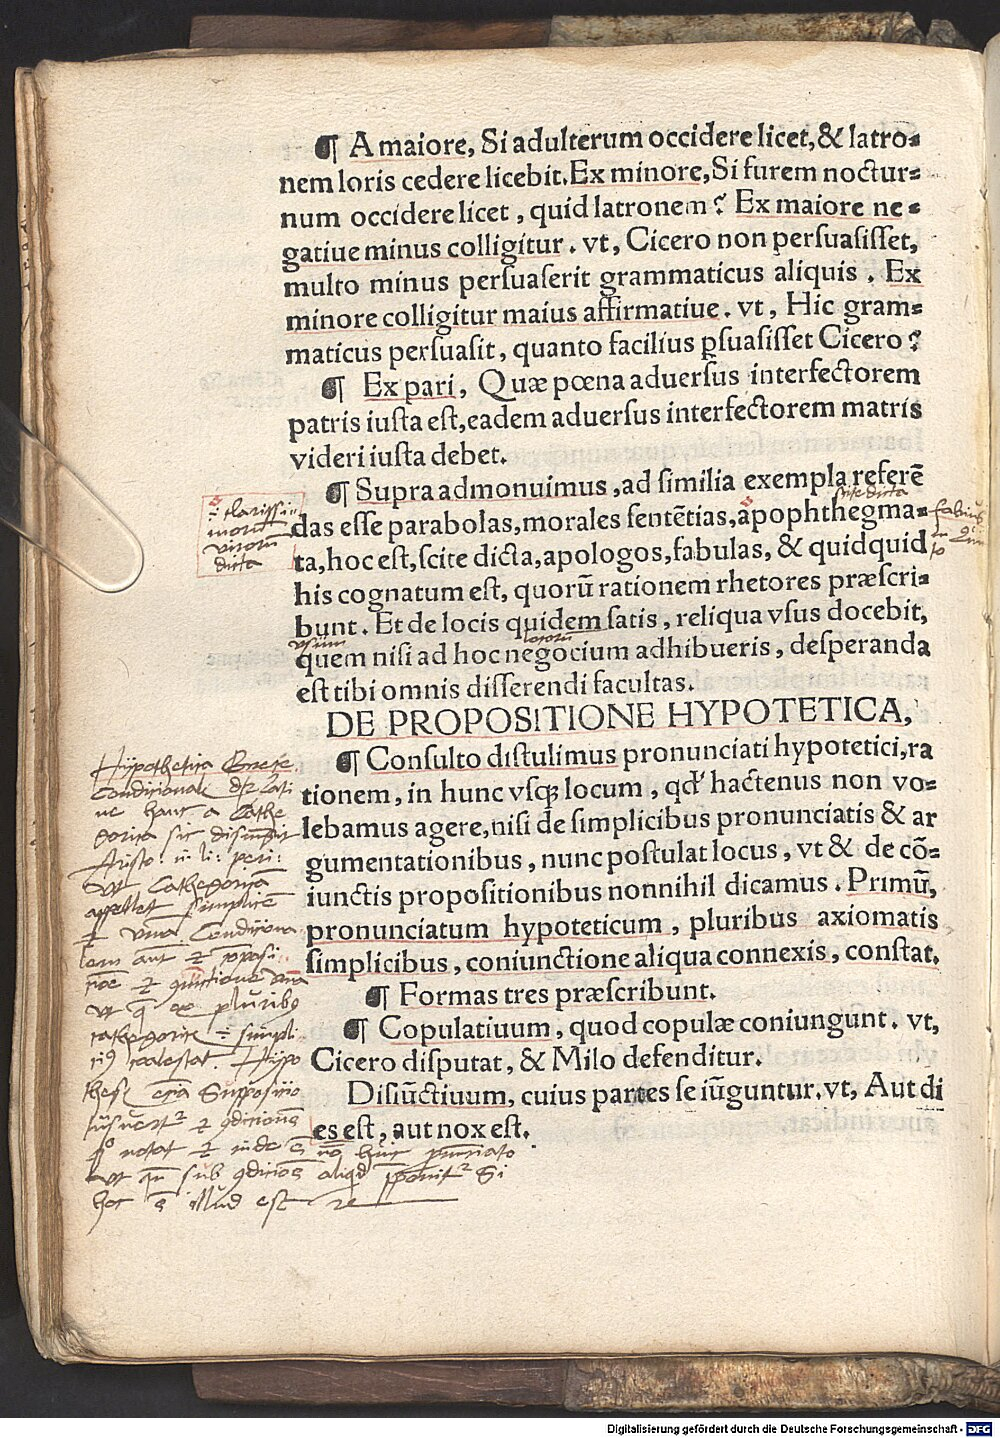 ¶ A maiore, Si adulterum occidere licet, & latro⸗
nem loris cedere licebit. Ex minore, Si furem noctur⸗
num occidere licet, quid latronem? Ex maiore ne⸗
gatiue minus colligitur. vt, Cicero non persuasisset,
multo minus persuaserit grammaticus aliquis. Ex
minore colligitur maius affirmatiue. vt, Hic gram⸗
maticus persuasit, quanto facilius ꝑsuasisset Cicero?
¶ Ex pari, Quæ pœna aduersus interfectorem
patris iusta est, eadem aduersus interfectorem matris
videri iusta debet.
¶ Supra admonuimus, ad similia exempla referē
scite dicta
das esse parabolas, morales sentētias, apophthegma⸗
ta, hoc est, scite dicta, apologos, fabulas, & quidquid
his cognatum est, quorū rationem rhetores præscri⸗
bunt. Et de locis quidem satis, reliqua vsus docebit,
vsum locorū
quem nisi ad hoc negocium adhibueris, desperanda
est tibi omnis disserendi facultas.
clarissi⸗
morū
virorū
dicta
fabius
DE PROPOSITIONE HYPOTETICA,
¶ Consulto distulimus pronunciati hypotetici, ra
tionem, in hunc vsqꝫ locum, qď hactenus non vo⸗
lebamus agere, nisi de simplicibus pronunciatis & ar
gumentationibus, nunc postulat locus, vt & de cō⸗
iunctis propositionibus nonnihil dicamus. Primū,
pronunciatum hypoteticum, pluribus axiomatis
simplicibus, coniunctione aliqua connexis, constat.
¶ Formas tres præscribunt.
¶ Copulatiuum, quod copulæ coniungunt. vt,
Cicero disputat, & Milo defenditur.
Disiūctiuum, cuius partes se iūguntur. vt, Aut di
es est, aut nox est.
Hypothetica Grece
Condicionale Lati
ne hanc a Cathe
gorica sic disungit
Aristo: in li: peri:
vt Cathegoricā
appellet simplicē
et vnā Condiciona
lem aut
vt ex pluribꝰ
cathegoricis simpli
Hypo
thesis Suppositio
notat et inde
vt sub
hoc illud est